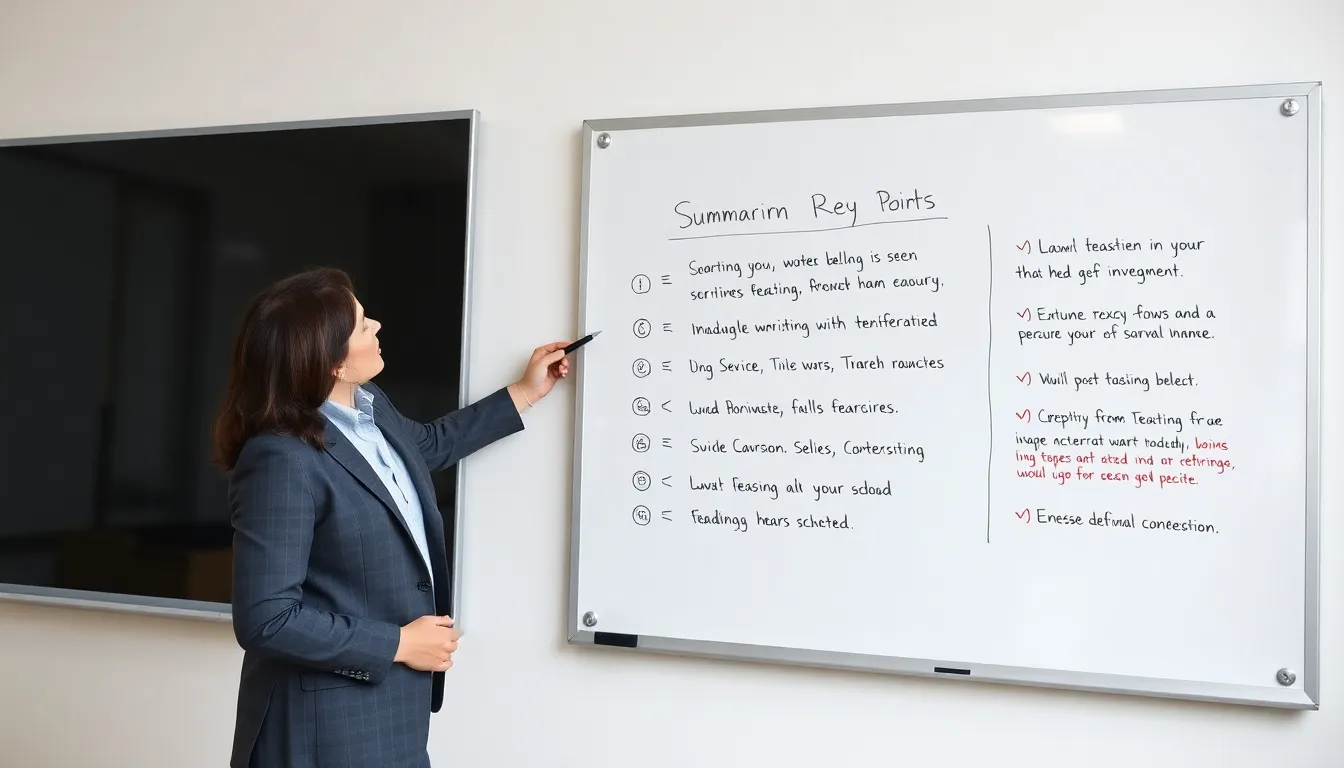 Summarirn Rey Points
Scarting you, water bellng is seen
scritires feating, frovct ham eaoury.
Imadugle worriting with tenferatied
Ung Service, Tile wors, Trareh rauactes
Luud Porinuste, falls fearcires.
Suide Caurson. Selles, Contersiting
Luvst Feasing alt your sdoad
Feadingg hears schcted.
Lauwl teastien in your
that hed gef invegment.
Extune rexcy fows and a
pecure your of sarval inance.
Wuill post tasting belect.
Creptity from Teating frae
inape ncterrat wart todcty, loins
ing topes ant atzd ind or cefriringe,
would ugo for cesen ged pecite.
Enesse defimal conestion.